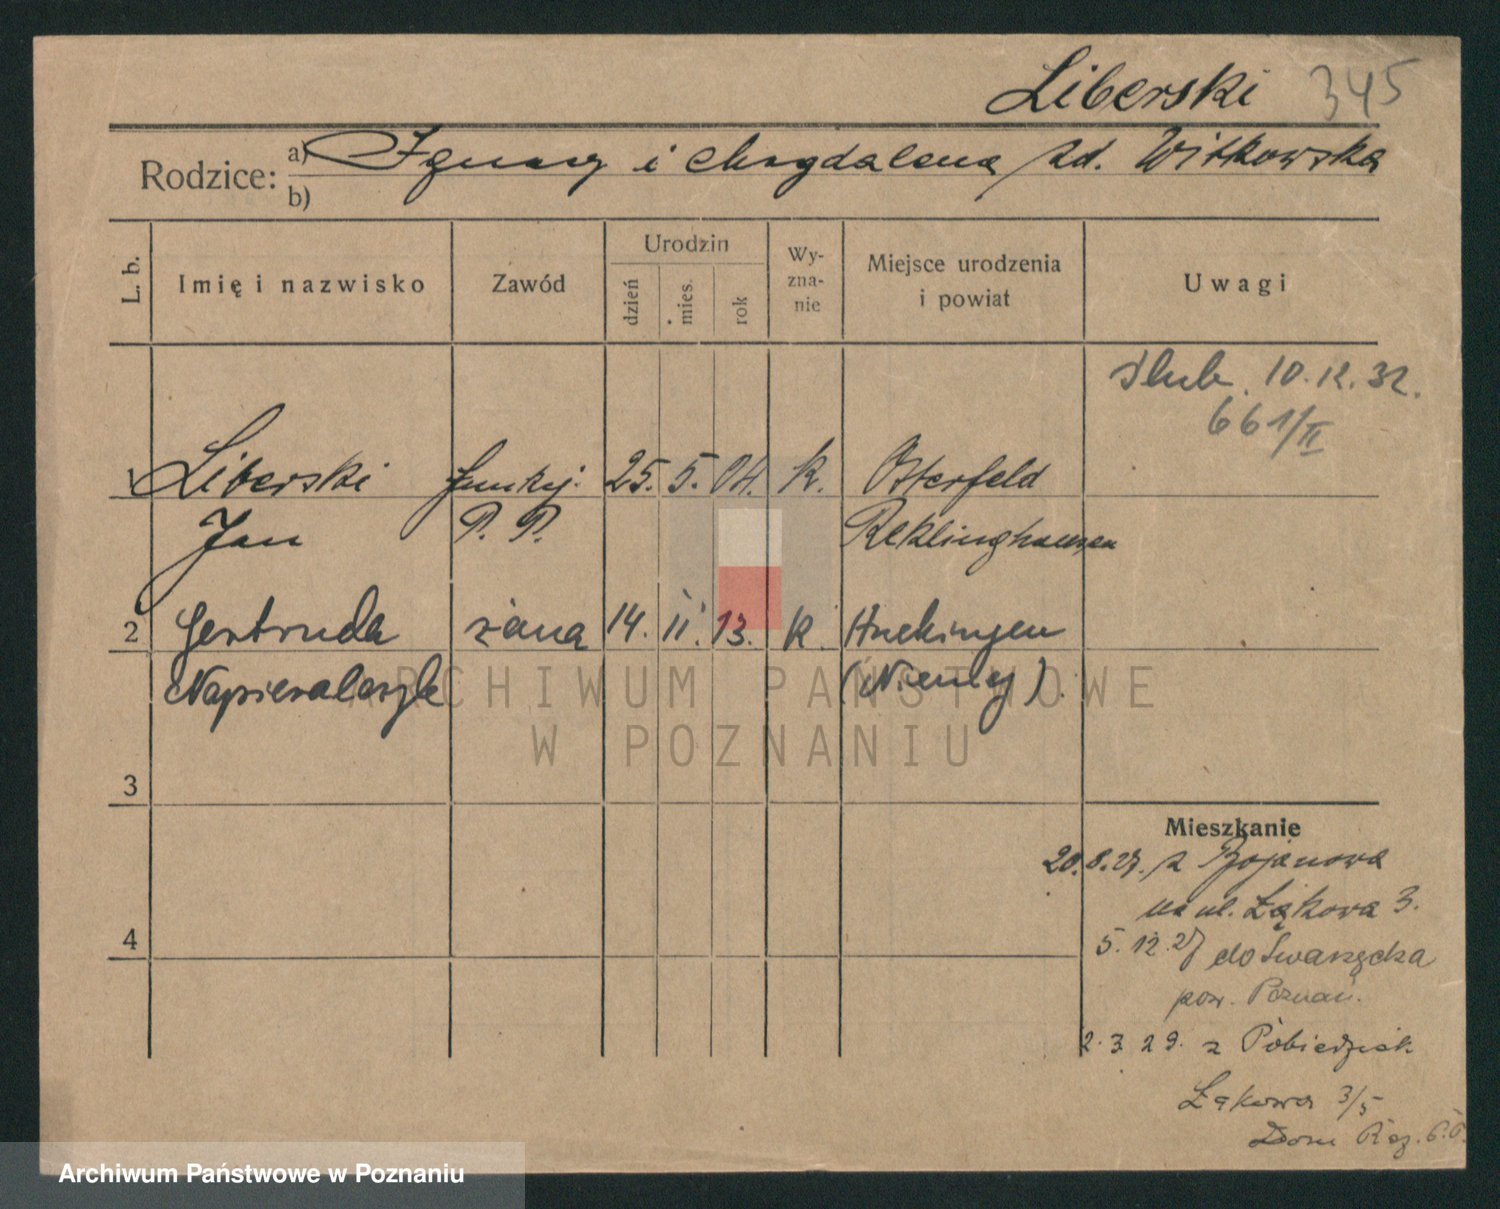 Liberski 345
Rodzice: a) Ignacy i Magdalena zd. Witkowska
b)
L. b. Imię i nazwisko Zawód Urodzin dzień mies. rok Wyznanie Miejsce urodzenia i powiat Uwagi
Ślub. 10.12.32.
661/II
1 Liberski funkcj. 25. 5. 04. k. Osterfeld
Jan P. P. Reklinghausen
2 Gertruda żona 14. II. 13. k. Huckingen
(Niemcy).
ARCHIWUM PAŃSTWOWE
W POZNANIU
3
Mieszkanie
20.8.27. z Bojanowa
na ul. Łąkowa 3.
4
5.12.27 do Swarzędza
pow. Poznań.
2.3.29. z Pobiedzisk
Łąkowa 3/5
Dom
Archiwum Państwowe w Poznaniu